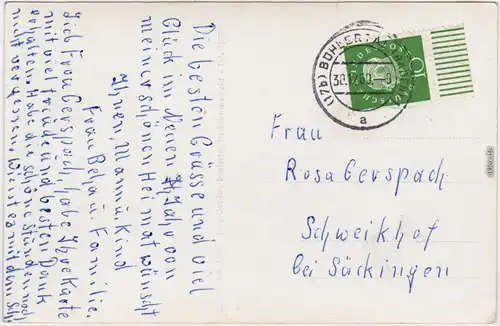 Die besten Grüsse und viel
Glück im Neuen Jahr von
meiner schönen Heimat wünscht
Ihnen, Mann u. Kind
Frau Beha u. Familie.
Frau Gerspach, habe Ihre Karte
mit viel Freude und besten Dank
erhalten. Habe die schöne Stunden noch
nicht vergessen. Wie ist es mit dem
(17b) BOHLERTAL
30.12.60
a
10
Frau
Rosa Gerspach
Schweikhof
bei Säckingen